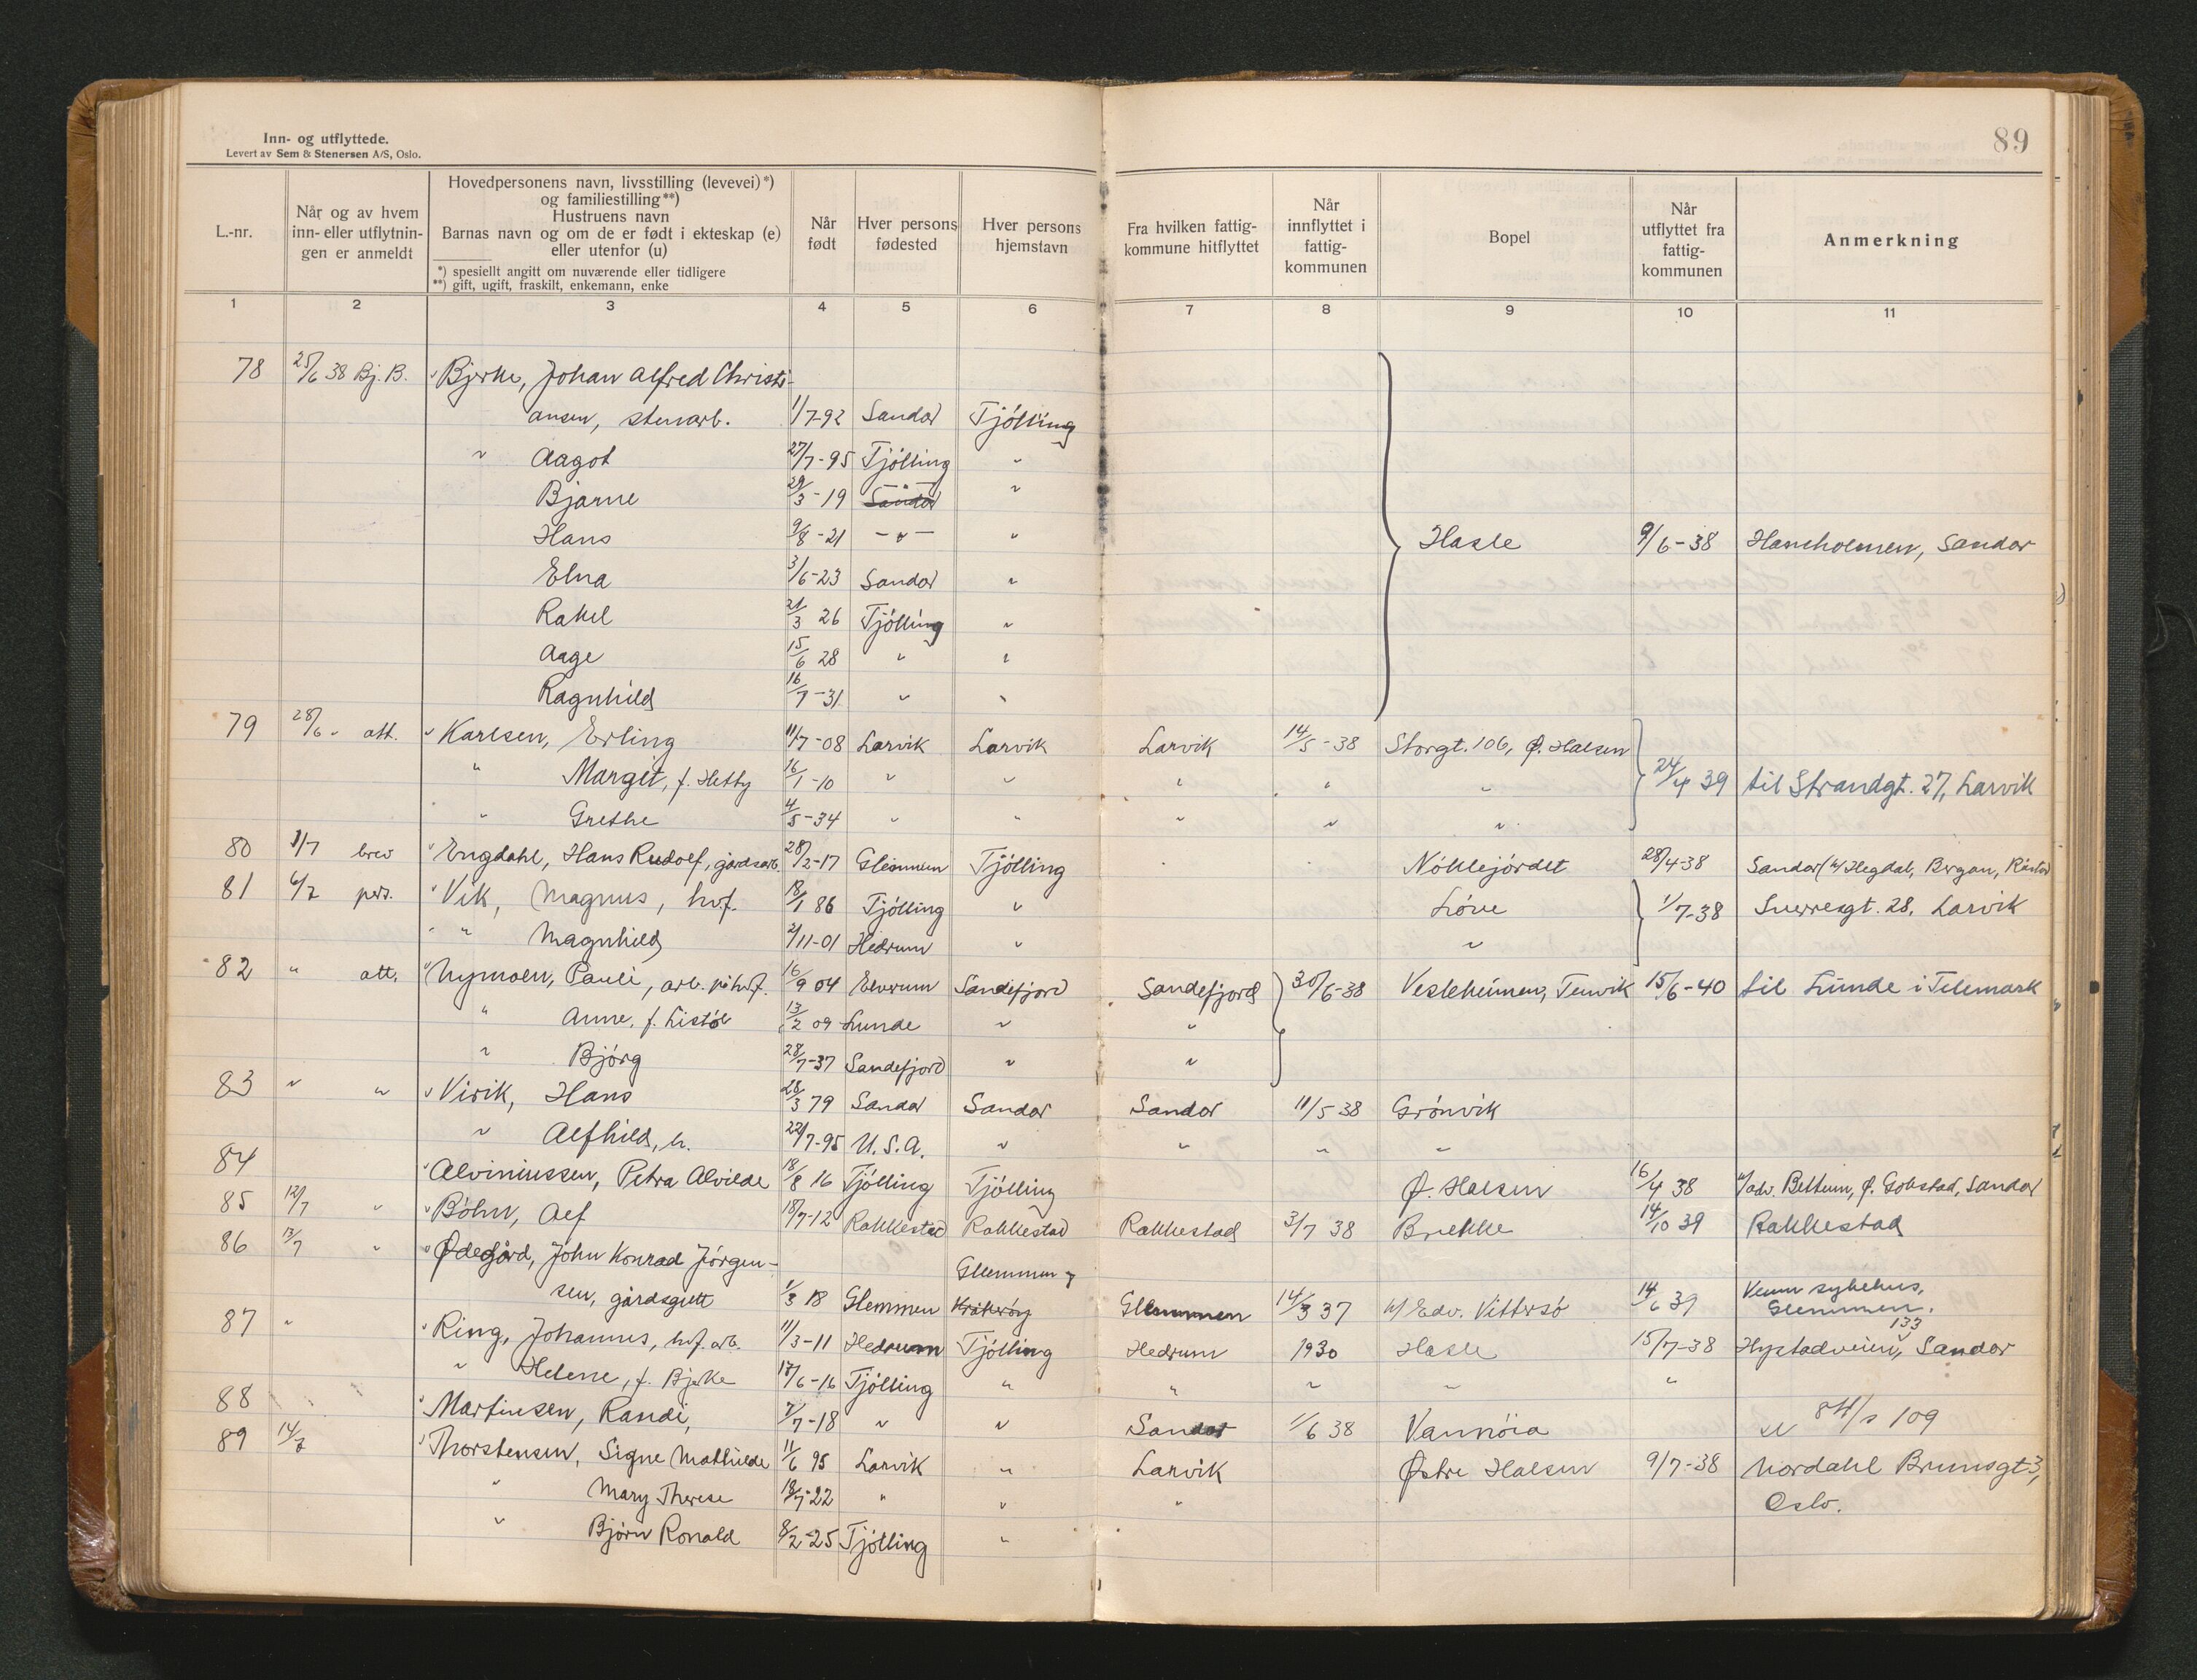 Inn- og utflyttede.
Levert av Sem & Stenersen A/S, Oslo.
89
L.-nr.
Når og av hvem
inn- eller utflytnin-
gen er anmeldt
Hovedpersonens navn, livsstilling (levevei)*)
og familiestilling**)
Hustruens navn
Barnas navn og om de er født i ekteskap (e)
eller utenfor (u)
*) spesiellt angitt om nuværende eller tidligere
**) gift, ugift, fraskilt, enkemann, enke
Når
født
Hver persons
fødested
Hver persons
hjemstavn
Fra hvilken fattig-
kommune hitflyttet
Når
innflyttet i
fattig-
kommunen
Bopel
Når
utflyttet fra
fattig-
kommunen
Anmerkning
1 2 3 4 5 6 7 8 9 10 11
78 25/6 38 Bj. B. Bjerke, Johan Alfred Christi-
ansen, stenarb. 1/7-92 Sandar Tjölling
" Aagot 27/7-95 Tjölling "
Bjarne 29/3-19 Sandar - " - "
Hans 9/8-21 - " - " Hasle 9/6-38 Haneholmen, Sandar
Elna 3/6-23 Sandar "
Rakel 21/3 26 Tjölling "
Aage 15/6 28 " "
Ragnhild 16/7-31 " "
79 28/6 " att. Karlsen, Erling 11/7-08 Larvik Larvik Larvik 14/5-38 Storgt. 106, Ø. Halsen
" Margit, f. Hetby 16/1-10 " " " " " 24/4 39 til Strandgt. 27, Larvik
" Grethe 4/5-34 " " " " "
80 1/7 brev Engdahl, Hans Rudolf, gårdsarb. 28/2-17 Glemmen Tjölling Nöklejördet 28/4-38 Sandar
81 6/7 pers. Vik, Magnus, hvf. 18/1 86 Tjölling " Löve 1/7-38 Sverresgt. 28, Larvik
" Magnhild 2/11-01 Hedrum " "
82 " att. Nymoen, Pauli, arb. på hvf. 16/9 04 Elverum Sandefjord Sandefjord 30/6-38 Vesleheimen, Tenvik 15/6-40 til Lunde i Telemark
" Anne, f. Listöl 13/2 09 Lunde " "
" Björg 28/7-37 Sandefjord " "
83 " " Virik, Hans 28/3 79 Sandar Sandar Sandar 11/5 38 Grönvik
" Alfhild, h. 22/7-95 U.S.A. " " " "
84 Alviniussen, Petra Alvilde 18/8 16 Tjölling Tjölling Ø. Halsen 16/4 38 h/adv. Bettum, Ø. Gokstad, Sandar
85 12/7 " Böhn, Alf 18/7-12 Rakkestad Rakkestad Rakkestad 3/7 38 Brekke 14/10 39 Rakkestad
86 13/7 " Ødegård, John Konrad Jörgen-
Glemmen
sen, gårdsgutt 1/3 18 Glemmen Kråkeröy Glemmen 14/3 37 h/ Edv. Vittersö 14/6 39 Venn sykehus,
Glemmen.
87 " Ring, Johannes, hvf. arb. 11/3-11 Hedrum Tjölling Hedrum 1930 Hasle 15/7-38 Hystadveien 133, Sandar
" Helene, f. Bjerke 17/6-16 Tjölling " " " " "
88 Martinsen, Randi, 7/7-18 " " Sandar 1/6 38 Vannöia se 84/s 109
89 14/7 Thorstensen, Signe Mathilde 11/6 95 Larvik " Larvik Østre Halsen 9/7-38 Nordahl Brunsgt. 3,
" Mary Therese 18/7-22 " " " Oslo.
" Björn Ronald 8/2-25 Tjölling "